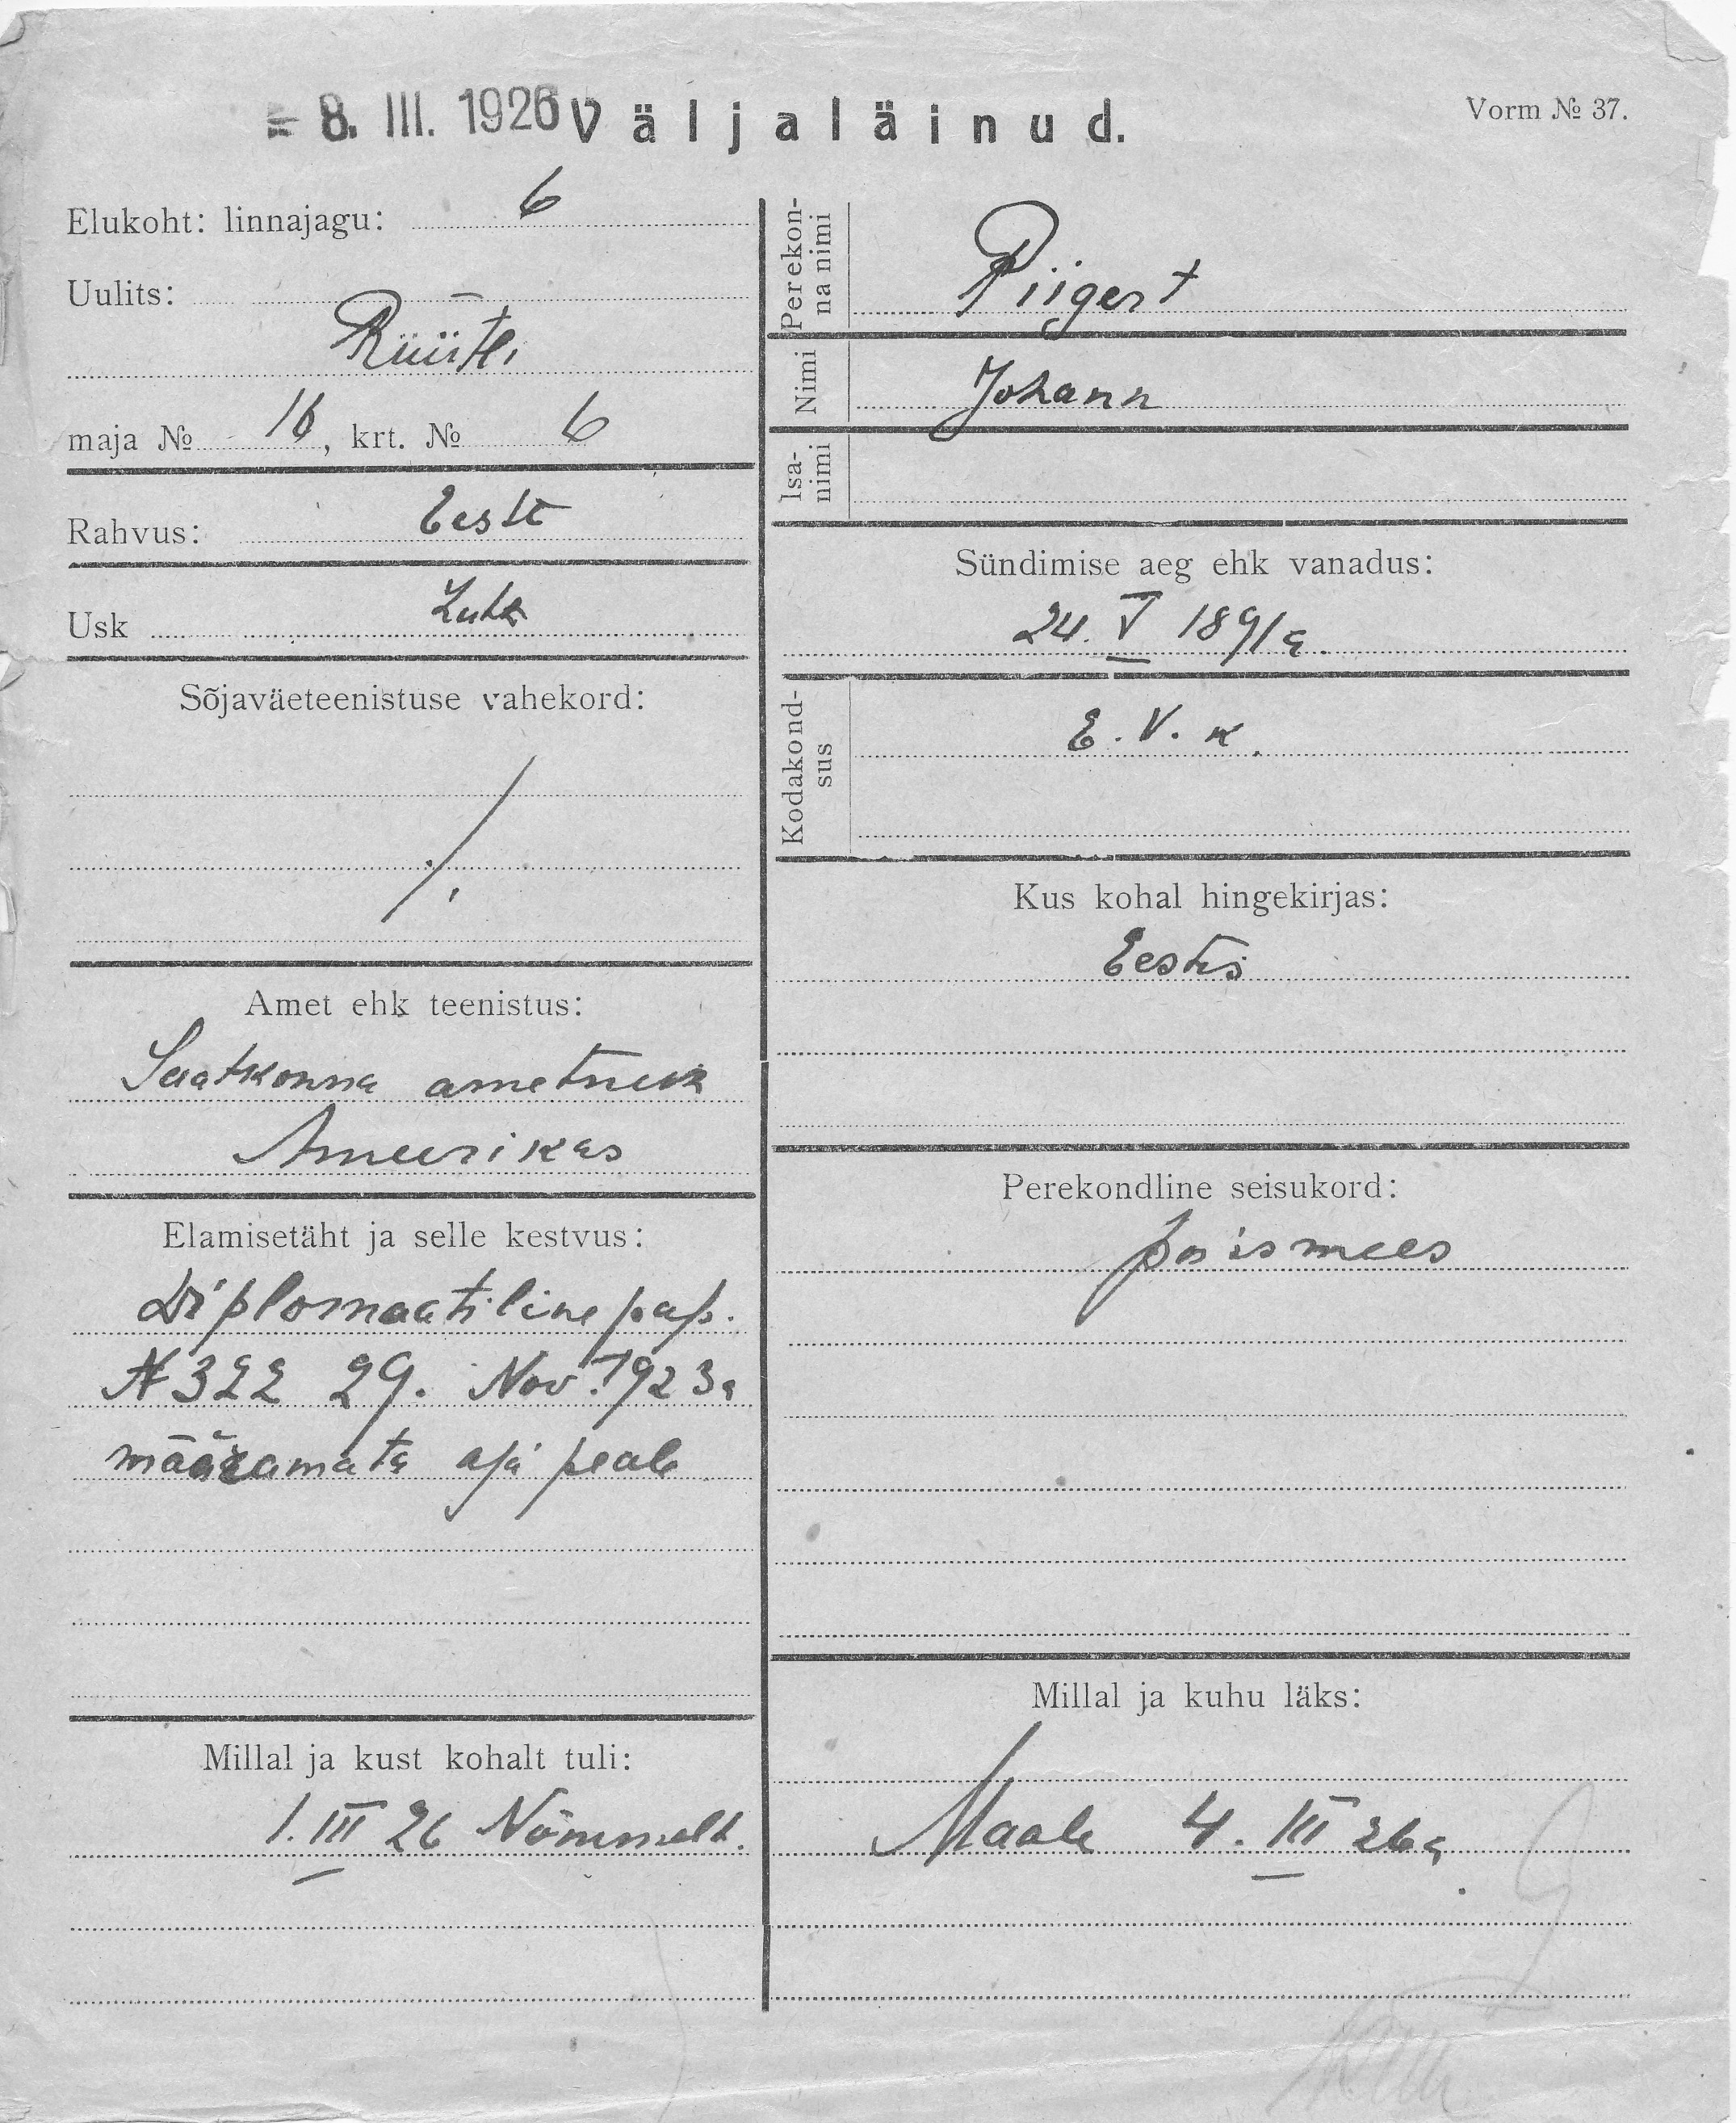 = 8. III. 1926 Väljaläinud.
Vorm № 37.
Elukoht: linnajagu: 6
Uulits:
Rüütli
maja № 16, krt. № 6
Rahvus: Eesti
Usk Luth
Sõjaväeteenistuse vahekord:
./.
Amet ehk teenistus:
Saatkonna ametnik
Ameerikas
Elamisetäht ja selle kestvus:
Diplomaatiline pap.
N 322 29. Nov. 1923a
määramata aja peale
Millal ja kust kohalt tuli:
1. III 26 Nõmmelt.
Perekon-
na nimi
Piigert
Nimi
Johann
Isa-
nimi
Sündimise aeg ehk vanadus:
24. V 1891a.
Kodakond-
sus
E. V. k.
Kus kohal hingekirjas:
Eestis
Perekondline seisukord:
poismees
Millal ja kuhu läks:
Maale 4. III 26a